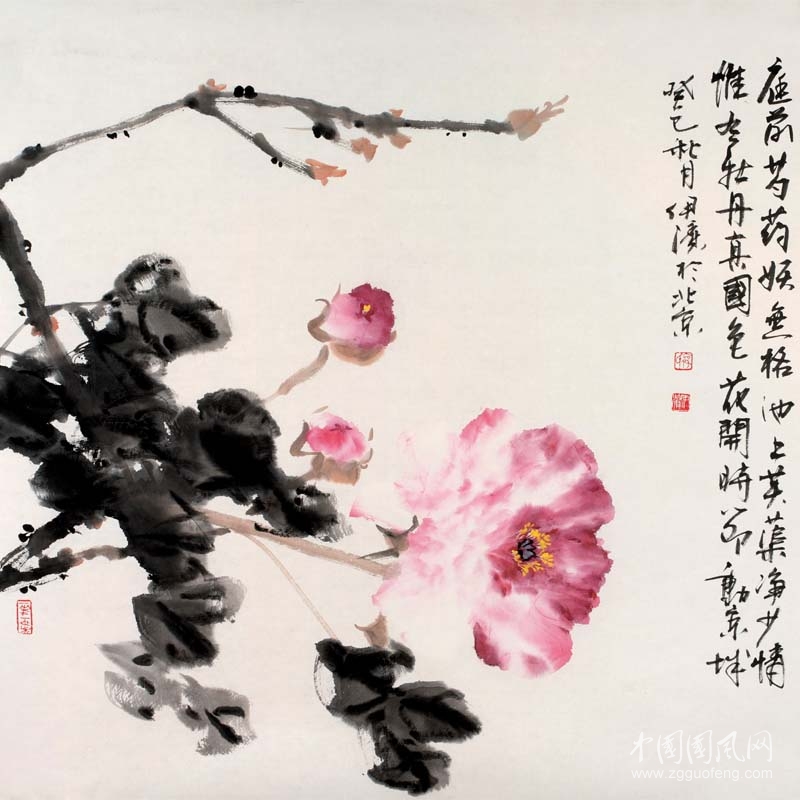 庭前芍药妖無格池上芙蕖净少情
惟有牡丹真國色花開時節動京城
癸巳秋月伊於北京
中国国风网
www.zgguofeng.com